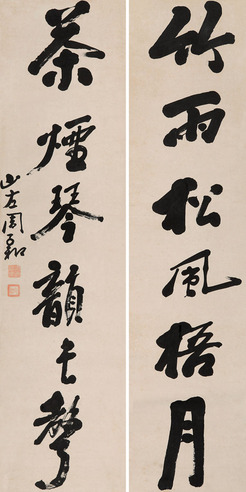 竹雨松風梧月
茶煙琴韻書聲
山左